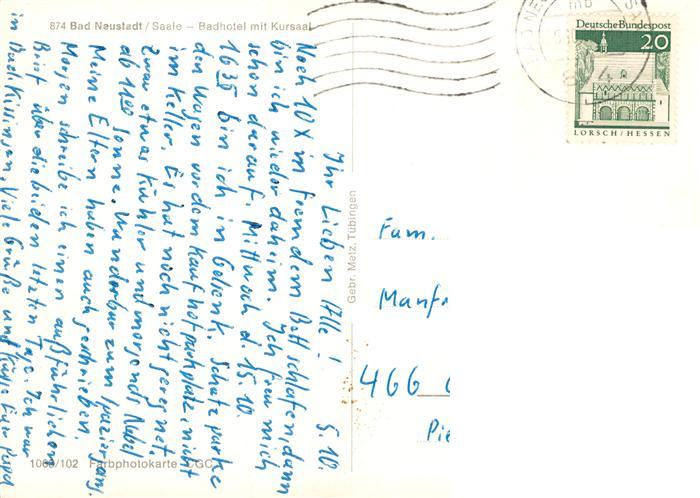 874 Bad Neustadt / Saale – Badhotel mit Kursaal
Ihr Lieben Alle! 5.10.
Noch 10 x im fremden Bett schlafen, dann
bin ich wieder daheim. Ich freu mich
schon darauf. Mittwoch d. 15.10.
16 35 bin ich in Gelsenk. Schatz parke
den Wagen vor dem Kaufhofparkplatz nicht
im Keller. Es hat noch nicht geregnet.
Zwar etwas kühler und morgends Nebel
ab 11 00 Sonne. Wunderbar zum spazieren.
Meine Eltern haben auch geschrieben.
Morgen schreibe ich einen ausführlichen
Brief über die beiden letzten Tage. Ich war
in Bad Kissingen. Viele Grüße und Küsse Euer Papa
1060/102 Farbphotokarte CGC
Gebr. Metz, Tübingen
Deutsche Bundespost
20
LORSCH/HESSEN
Fam.
Manf
466